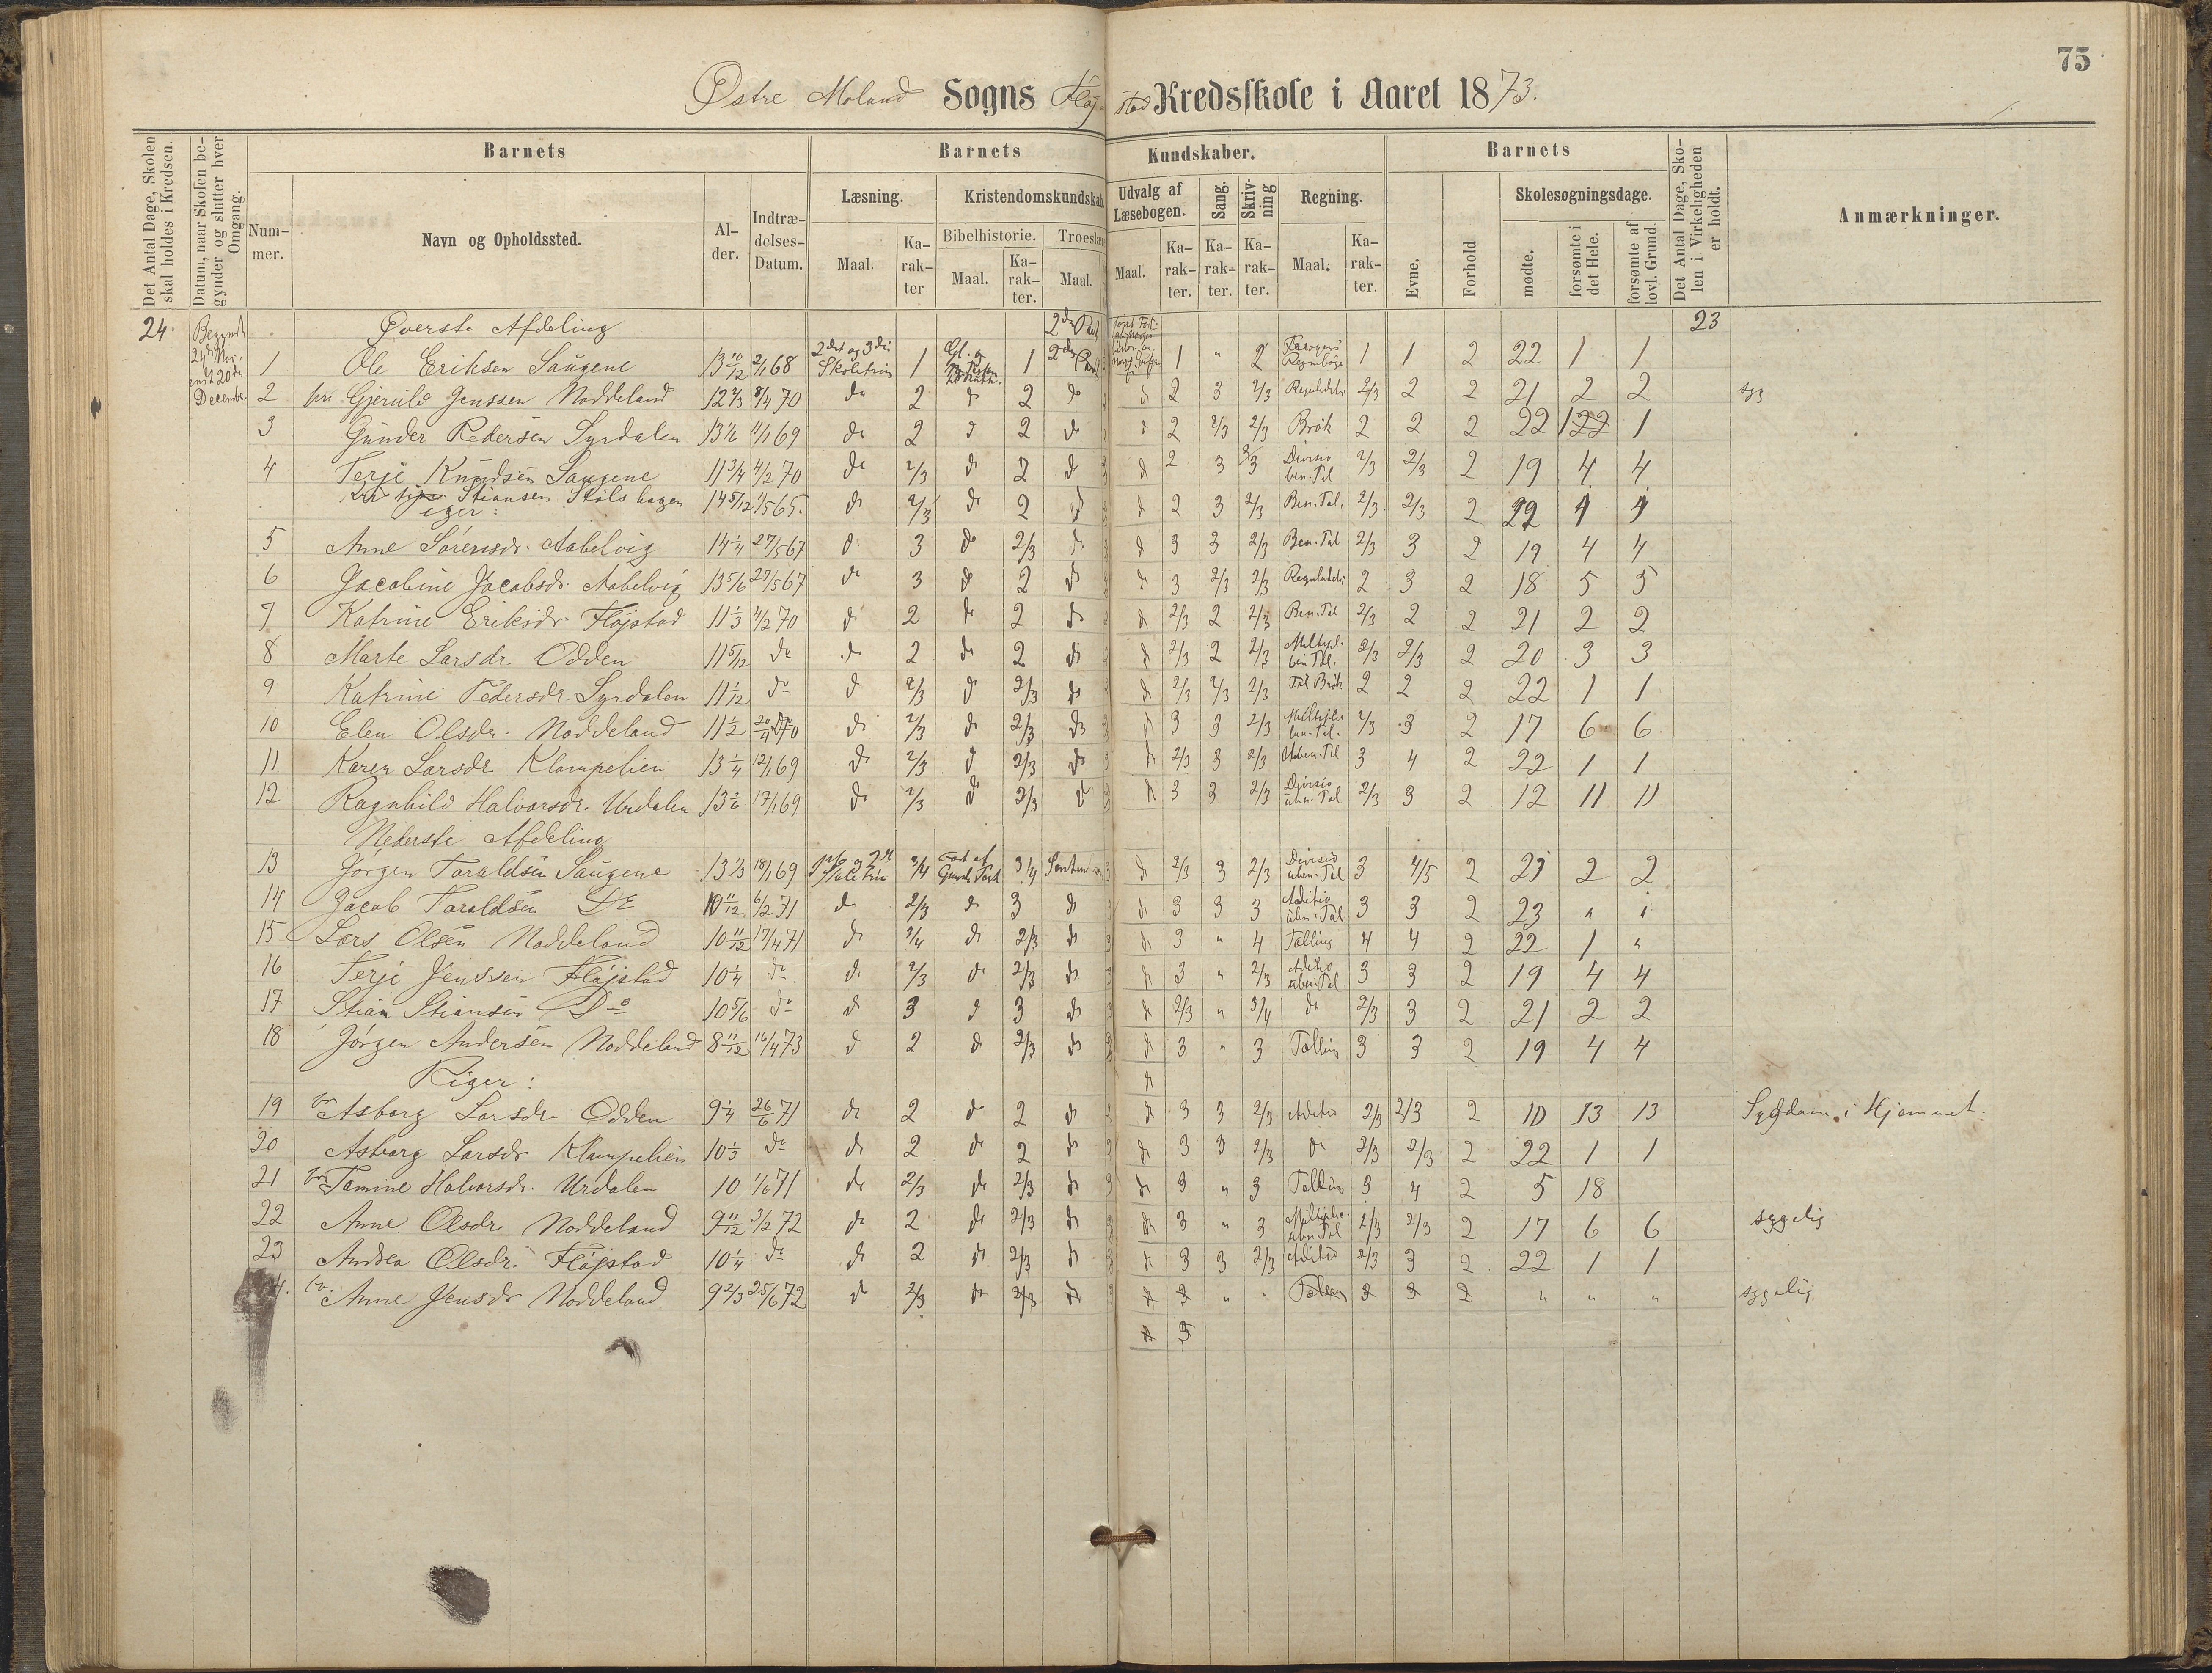 75
Østre Moland Sogns Fløjstad Kredsskole i Aaret 1873.
Det Antal Dage, Skolen skal holdes i Kredsen.
Datum, naar Skolen begynder og slutter hver Omgang.
Barnets
Nummer.
Navn og Opholdssted.
Alder.
Indtrædelses-Datum.
Barnets Kundskaber.
Læsning.
Maal.
Karakter
Kristendomskundskab
Bibelhistorie.
Maal.
Karakter.
Troeslære
Maal.
Udvalg af Læsebogen.
Maal.
Karakter.
Sang.
Karakter.
Skrivning
Karakter.
Regning.
Maal.
Karakter.
Barnets
Evne.
Forhold
Skolesøgningsdage.
mødte.
forsømte i det Hele.
forsømte af lovl. Grund.
Det Antal Dage, Skolen i Virkeligheden er holdt.
Anmærkninger.
24. Begyndt Øverste Afdeling 23
24de Nov. endt 20de December
1 Ole Eriksen Saugene 13 10/12 2/1 68 2det og 3die Skoletrin 1 Gl. og 1 2den Part 1 " 2 Regnebog 1 1 2 22 1 1
2 Gjerulv Jenssen Noddeland 12 2/3 8/4 70 do 2 do 2 do do 2 3 2/3 Reguladetri 2/3 2 2 21 2 2 syg
3 Gunder Pedersen Syrdalen 13 1/6 11/1 69 do 2 do 2 do do 2 2/3 2/3 Brøk 2 2 2 22 1 22 1
4 Terje Knudsen Saugene 11 3/4 4/2 70 do 2/3 do 2 do do 2 3 3 Divisio ben. Tal 2/3 2/3 2 19 4 4
Stiansen Stølshagen 14 5/12 1/5 65. do 2/3 do 2 do do 2 3 2/3 Ben. Tal. 2/3 2/3 2 22
5 Anne Sørensdr. Aabelvig 14 1/4 27/5 67 do 3 do 2/3 do do 3 3 2/3 Ben. Tal 2/3 3 2 19 4 4
6 Jacobine Jacobsdr. Aabelvig 13 5/6 27/5 67 do 3 do 2 do do 3 2/3 2/3 Reguladetri 2 3 2 18 5 5
7 Katrine Eriksdr. Fløjstad 11 1/3 4/2 70 do 2 do 2 do do 2/3 2 2/3 Ben. Tal 2/3 2 2 21 2 2
8 Marte Larsdr. Odden 11 5/12 do do 2 do 2 do do 2/3 2 2/3 Multipl. ben Tal. 2/3 2/3 2 20 3 3
9 Katrine Pedersdr. Syrdalen 11 1/12 do do 2/3 do 2/3 do do 2/3 2/3 2/3 Tal Brøk 2 2 2 22 1 1
10 Elen Olsdr. Noddeland 11 1/2 20/4 70 do 2/3 do 2/3 do do 3 3 2/3 2/3 3 2 17 6 6
11 Karen Larsdr. Klampelien 13 1/4 12/1 69 do 2/3 do 2/3 do do 2/3 3 2/3 Uben. Tal 3 4 2 22 1 1
12 Ragnhild Halvorsdr. Urdalen 13 1/6 17/1 69 do 2/3 do 2/3 do do 3 3 2/3 Divisio uben. Tal 2/3 3 2 12 11 11
Nederste Afdeling
13 Jørgen Taraldsen Saugene 13 1/3 18/1 69 3/4 3/4 do 2/3 3 2/3 Divisio uben. Tal 3 4/5 2 21 2 2
14 Jacob Taraldsen Do 10 11/12 6/2 71 do 2/3 do 3 do do 3 3 3 Aditio uben. Tal 3 3 2 23 " "
15 Lars Olsen Noddeland 10 11/12 17/4 71 do 3/4 do 2/3 do do 3 " 4 Tælling 4 4 2 22 1 "
16 Terje Jenssen Fløjstad 10 1/4 do do 2/3 do 2/3 do do 3 " 2/3 Aditio uben. Tal. 3 3 2 19 4 4
17 Stian Stiansen Do 10 5/6 do do 3 do 3 do do 2/3 " 3/4 do 2/3 3 2 21 2 2
18 Jørgen Andersen Noddeland 8 11/12 16/4 73 do 2 do 2/3 do do 3 " 3 Tælling 3 3 2 19 4 4
Piger: do
19 Asborg Larsdr. Odden 9 1/4 26/6 71 do 2 do 2 do do 3 3 2/3 Aditio 2/3 2/3 2 10 13 13 Sygdom i Hjemmet.
20 Asborg Larsdr. Klampelien 10 1/3 do do 2 do 2 do do 3 3 2/3 do 2/3 2/3 2 22 1 1
21 Tomine Halvorsdr. Urdalen 10 1/6 71 do 2/3 do 2/3 do do 3 " 3 Tælling 3 4 2 5 18
22 Anne Olsdr. Noddeland 9 11/12 3/2 72 do 2 do 2/3 do do 3 " 3 uben. Tal 2/3 2/3 2 17 6 6 sygelig
23 Andrea Olsdr. Fløjstad 10 1/4 do do 2 do 2/3 do do 3 3 2/3 Aditio 2/3 3 2 22 1 1
4. Anne Jensdr. Noddeland 9 2/3 25/6 72 do 2/3 do 2/3 do do 3 " " Tælling 3 3 2 " " " sygelig
do 3